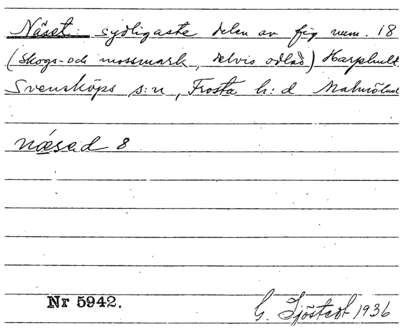 Näset: sydligaste delen av fig num. 18
(Skogs- och mossmark, delvis odlad) Harphult
Svensköps s:n, Frosta h:d Malmöhus
næsad 8
Nr 5942.
G. Sjöstedt 1936